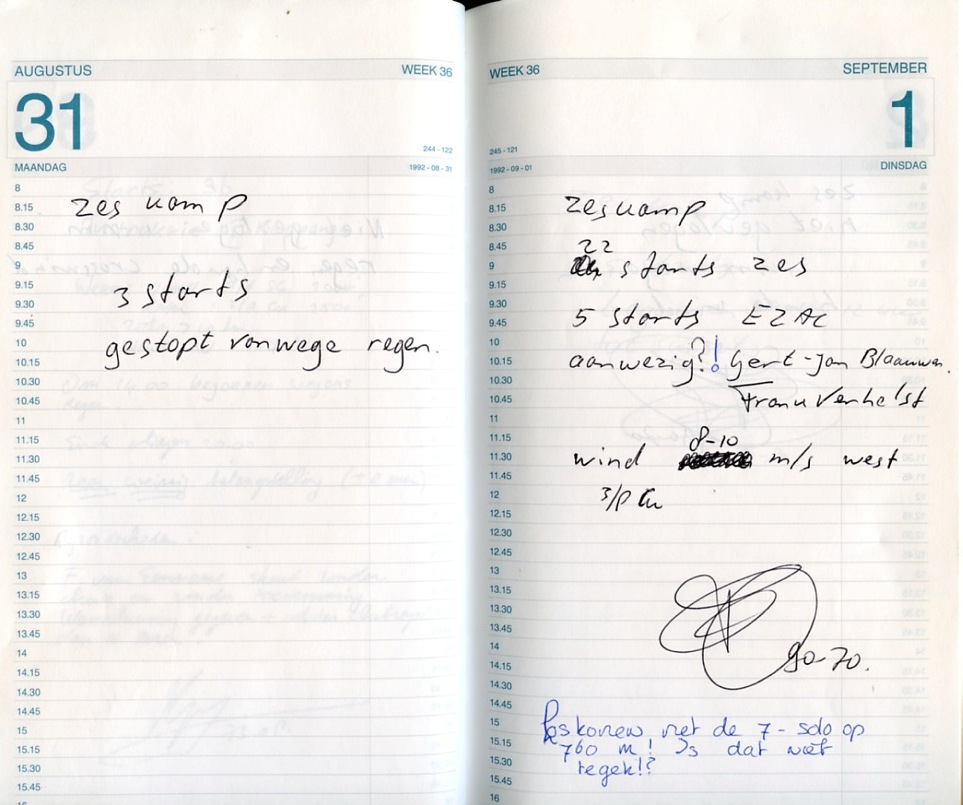 AUGUSTUS WEEK 36
31
244 - 122
MAANDAG 1992 - 08 - 31
8
8.15
8.30
8.45
9
9.15
9.30
9.45
10
10.15
10.30
10.45
11
11.15
11.30
11.45
12
12.15
12.30
12.45
13
13.15
13.30
13.45
14
14.15
14.30
14.45
15
15.15
15.30
15.45
16
zes kamp
3 starts
gestopt vanwege regen.
WEEK 36 SEPTEMBER
1
245 - 121
1992 - 09 - 01 DINSDAG
8
8.15
8.30
8.45
9
9.15
9.30
9.45
10
10.15
10.30
10.45
11
11.15
11.30
11.45
12
12.15
12.30
12.45
13
13.15
13.30
13.45
14
14.15
14.30
14.45
15
15.15
15.30
15.45
16
zeskamp
22
starts zes
5 starts EZAC
aanwezig?! Gert-Jan Blaauw
Frank Verhelst
8-10
wind m/s west
3/8 Cu
90-70.
met de 7 - solo op
760 m! Is dat wat